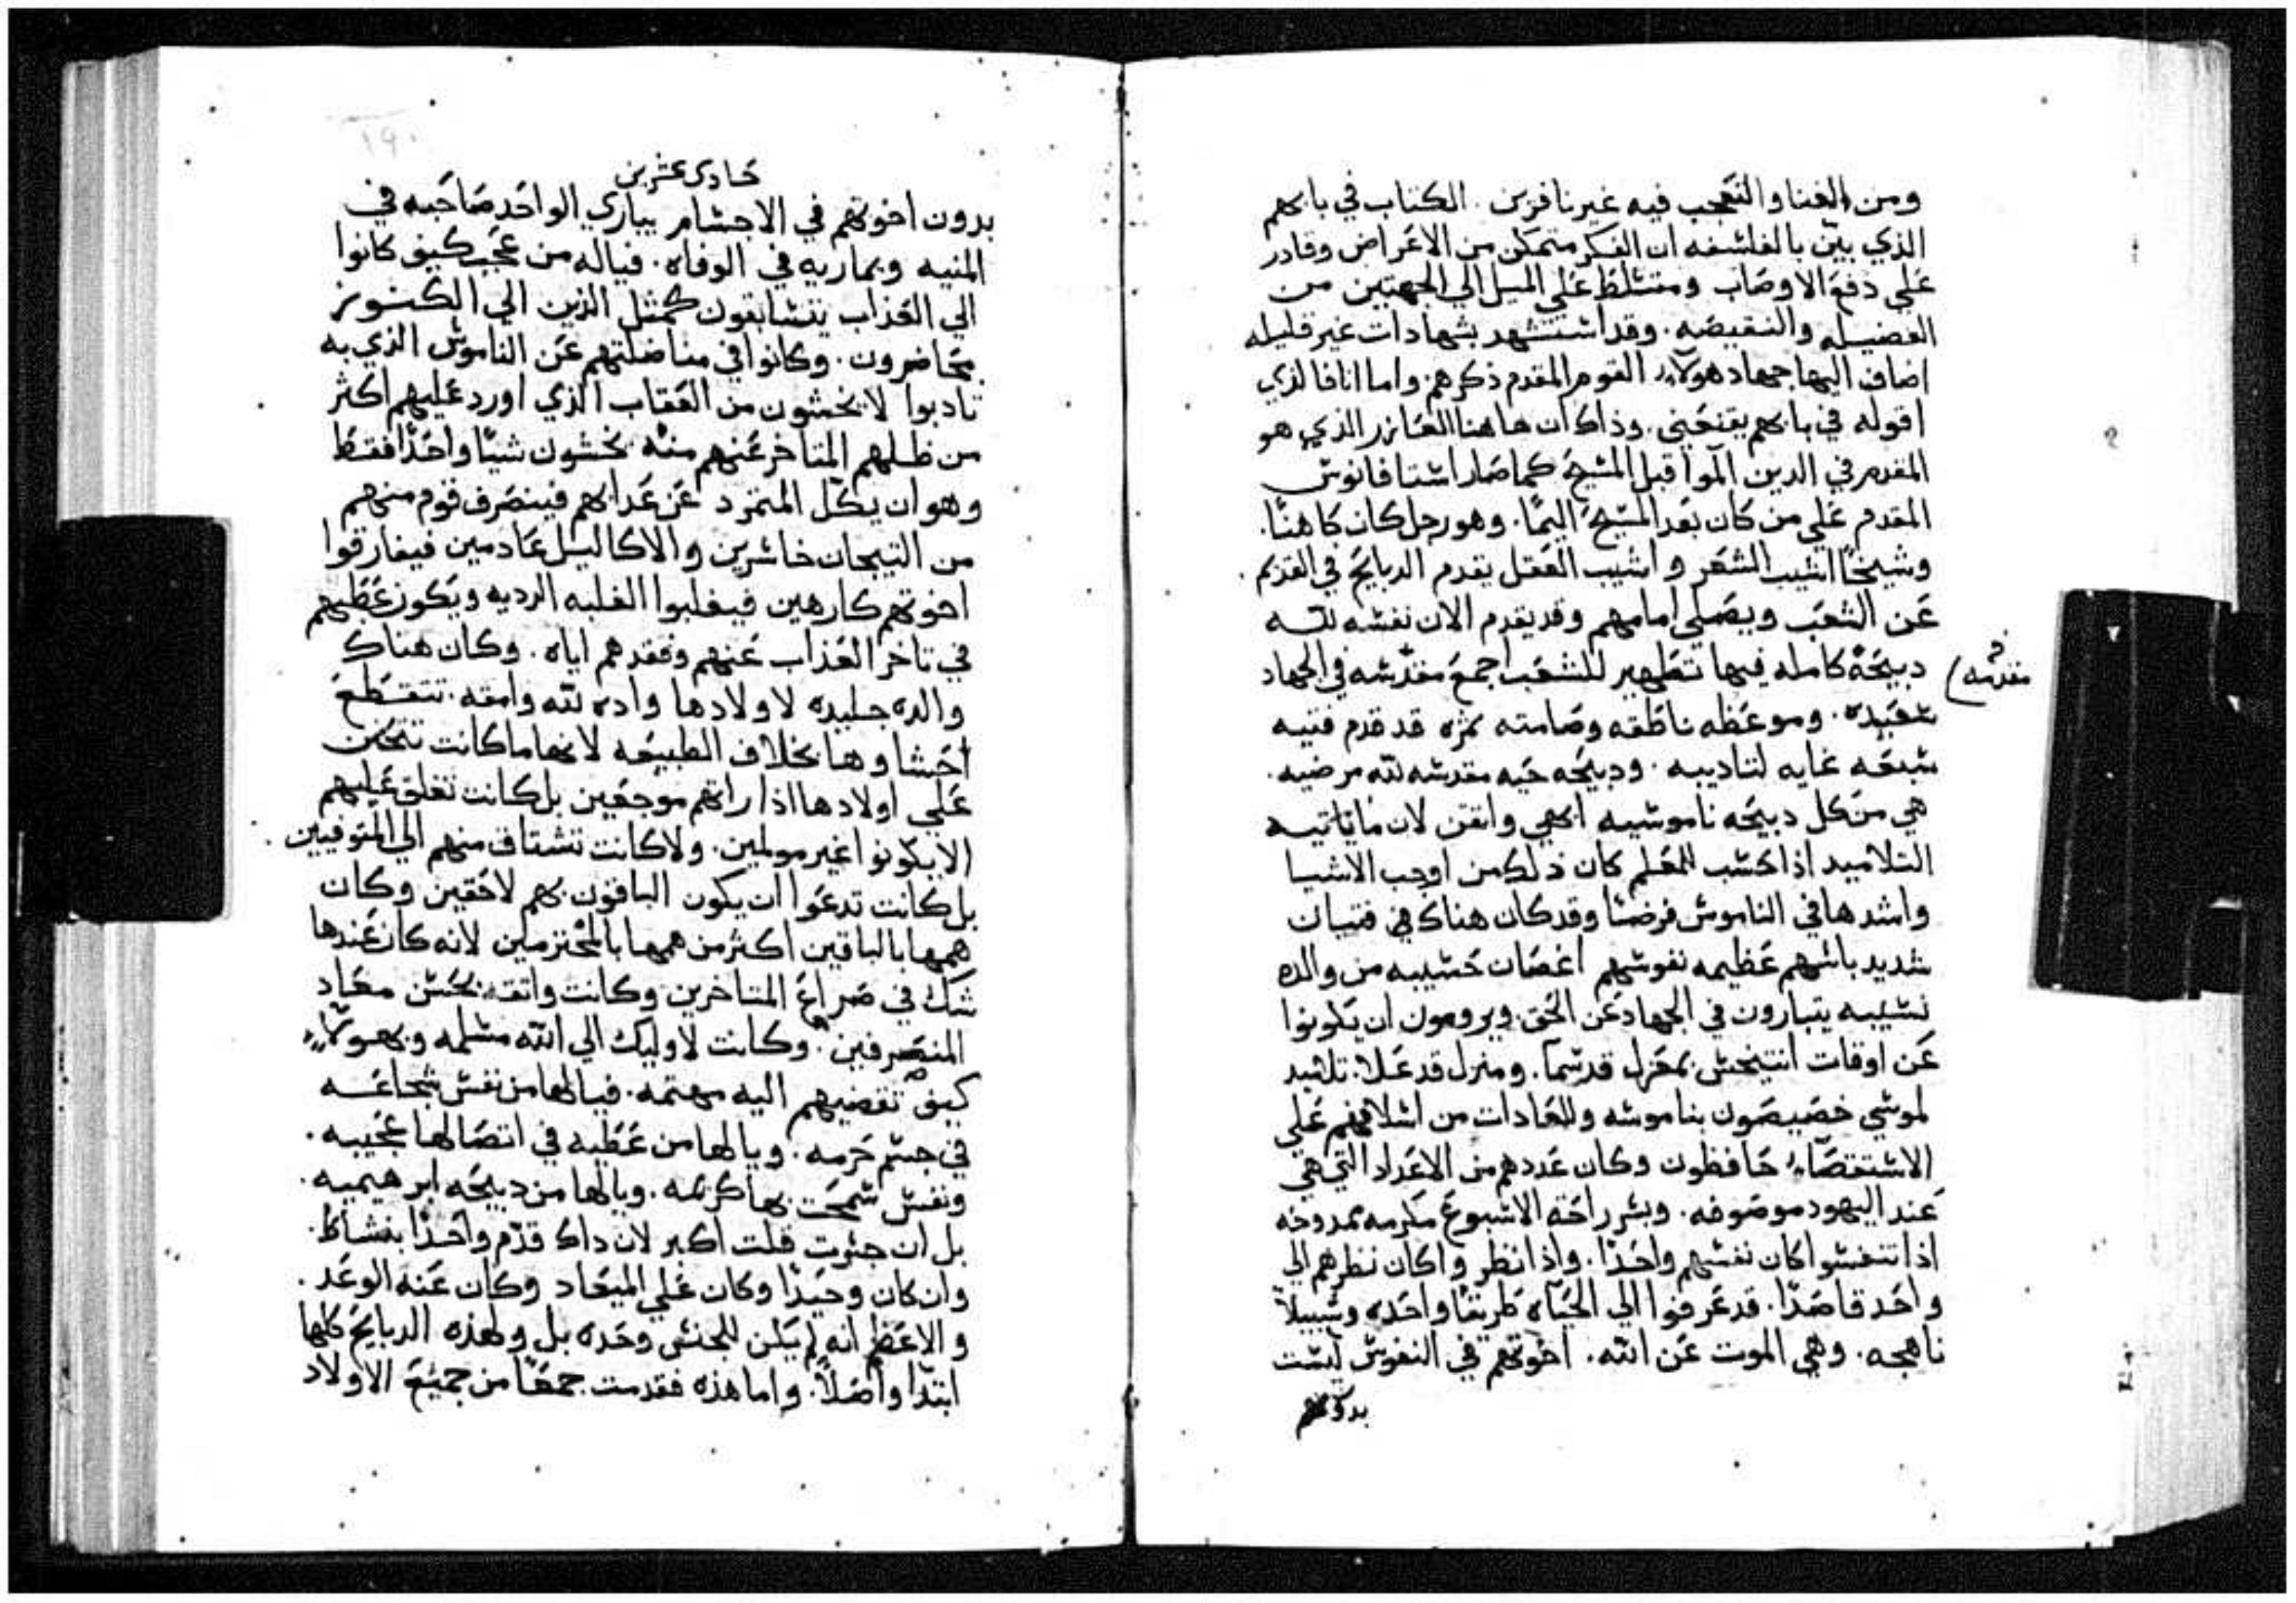 ومن الغنا والتعجب فيه غير نافرين . الكتاب في بابهم
الذي بين بالفلسفه ان الفكر متمكن من الاعراض وقادر
علي دفع الاوصاب ومتسلط علي الميل الي الجهتين من
الفضيله والنقيصه . وقد استشهد بشهادات غير قليله
اضاف اليها جهاد هولآء القوم المقدم ذكرهم واما انا فالذي
اقوله في بابهم يقنعني . وذاك ان هاهنا العازر الذي هو
المقدم في الدين آلموا قبل المسيح كما صار استافانوس
المقدم علي من كان بعد المسيح اليمًا . وهو رجل كان كاهنًا .
وشيخًا اشيب الشعر واشيب العقل يقدم الدبايح في القديم .
عن الشعب ويصلي امامهم وقد يقدم الان نفسه لله
دبيحة كامله فيها تطهير للشعب اجمع مقدسه في الجهاد
مقدمه
سعيده . وموعظه ناطقه وصامته نزه قد قدم فتيه
سبعه غايه لتاديبه . ودبيحه حيه مقدسه لله مرضيه .
هي من كل دبيحه ناموسيه ابهي وانقن لان ماياتيه
التلاميد اذا حسب للمعلم كان ذلك من اوجب الاشيا
واشدها في الناموس فرضًا وقد كان هناك في فتيان
شديد باسهم عظيمه نفوسهم اغصان حسيبه من والده
نسيبه يتبارون في الجهاد عن الحق ويرومون ان يكونوا
عن اوقات انتيخس بمعزل قد سما . ومنزل قد علا . تلاميد
لموسي خصيصون بناموسه وللعادات من اسلافهم علي
الاستقصآء حافظون وكان عددهم من الاعداد التي هي
عند اليهود موصوفه . وبسر راحة الاسبوع مكرمه ممدوحه
اذا تنفسوا كان نفسهم واحدًا . واذا نظروا كان نظرهم الي
واحد قاصدًا . قد عرفوا الي الحياه طريقًا واحده وسبيلًا
ناهجه . وهي الموت عن الله . اخوتهم في النفوس ليست
بدون
حادي عشرين
بدون اخوتهم في الاجسام يباري الواحد صاحبه في
المنيه ويماريه في الوفاه . فياله من عجب كيف كانوا
الي العذاب يتسابقون كمثل الذين الي الكنوز
يحاضرون . وكانوا في مناضلتهم عن الناموس الذي به
تادبوا لا يخشون من العقاب الذي اورد عليهم اكثر
من طلبهم المتاخر عنهم منه يخشون شيًا واحدًا فقط
وهو ان يكل المتمرد عن عدابهم فينصرف قوم منهم
من التيجان خاسرين والاكاليل عادمين فيفارقوا
اخوتهم كارهين فيغلبوا الغلبه الرديه ويكون عطبهم
في تاخر العذاب عنهم وفقدهم اياه . وكان هناك
والده جليده لاولادها واده لله وامقه . تتقطع
احشاوها بخلاف الطبيعه لانها ما كانت تتحنن
علي اولادها اذا راتهم موجعين بل كانت تقلق عليهم
الا يكونوا غير مولمين . ولا كانت تشتاق منهم الي المتوفيين .
بل كانت تدعوا ان يكون الباقون بهم لاحقين وكان
همها بالباقين اكثر من همها بالمخترمين لانه كان عندها
شك في صراع المتاخرين وكانت واثقه بحسن معاد
المنصرفين . وكانت لاوليك الي الله مسلمه وبهولآء
كيف تقضيهم اليه مهتمه . فيالها من نفس شجاعه
في جسم حرمه . ويالها من عطيه في اتصالها عجيبه .
ونفس سمحت بها كريمه . ويالها من دبيحه ابرهيميه .
بل ان جسرت قلت اكبر لان داك قدم واحدًا بنشاط .
وان كان وحيدًا وكان علي الميعاد وكان عنه الوعد .
والاعظم انه لم يكن للجنس وحده بل ولهذه الدبايح كلها
ابتدا واصلاً . واما هذه فقدمت جمعًا من جميع الاولاد